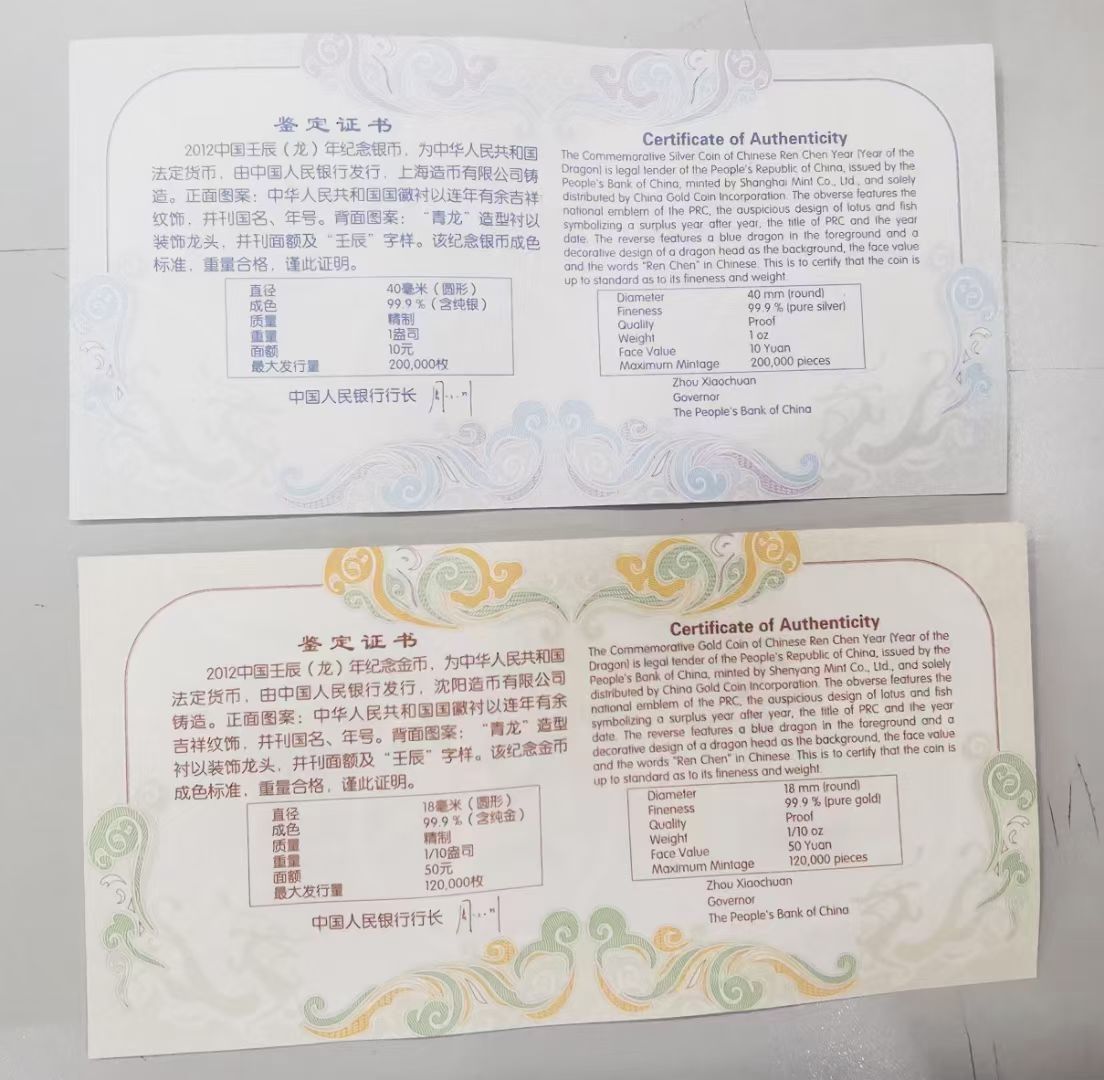 鉴定证书
2012中国壬辰（龙）年纪念银币，为中华人民共和国
法定货币，由中国人民银行发行，上海造币有限公司铸
造。正面图案：中华人民共和国国徽衬以连年有余吉祥
纹饰，并刊国名、年号。背面图案：“青龙”造型衬以
装饰龙头，并刊面额及“壬辰”字样。该纪念银币成色
标准，重量合格，谨此证明。
直径 40毫米（圆形）
成色 99.9％（含纯银）
质量 精制
重量 1盎司
面额 10元
最大发行量 200,000枚
中国人民银行行长
Certificate of Authenticity
The Commemorative Silver Coin of Chinese Ren Chen Year (Year of the
Dragon) is legal tender of the People's Republic of China, issued by the
People's Bank of China, minted by Shanghai Mint Co., Ltd., and solely
distributed by China Gold Coin Incorporation. The obverse features the
national emblem of the PRC, the auspicious design of lotus and fish
symbolizing a surplus year after year, the title of PRC and the year
date. The reverse features a blue dragon in the foreground and a
decorative design of a dragon head as the background, the face value
and the words "Ren Chen" in Chinese. This is to certify that the coin is
up to standard as to its fineness and weight.
Diameter 40 mm (round)
Fineness 99.9 % (pure silver)
Quality Proof
Weight 1 oz
Face Value 10 Yuan
Maximum Mintage 200,000 pieces
Zhou Xiaochuan
Governor
The People's Bank of China
鉴定证书
2012中国壬辰（龙）年纪念金币，为中华人民共和国
法定货币，由中国人民银行发行，沈阳造币有限公司
铸造。正面图案：中华人民共和国国徽衬以连年有余
吉祥纹饰，并刊国名、年号。背面图案：“青龙”造型
衬以装饰龙头，并刊面额及“壬辰”字样。该纪念金币
成色标准，重量合格，谨此证明。
直径 18毫米（圆形）
成色 99.9％（含纯金）
质量 精制
重量 1/10盎司
面额 50元
最大发行量 120,000枚
中国人民银行行长
Certificate of Authenticity
The Commemorative Gold Coin of Chinese Ren Chen Year (Year of the
Dragon) is legal tender of the People's Republic of China, issued by the
People's Bank of China, minted by Shenyang Mint Co., Ltd., and solely
distributed by China Gold Coin Incorporation. The obverse features the
national emblem of the PRC, the auspicious design of lotus and fish
symbolizing a surplus year after year, the title of PRC and the year
date. The reverse features a blue dragon in the foreground and a
decorative design of a dragon head as the background, the face value
and the words "Ren Chen" in Chinese. This is to certify that the coin is
up to standard as to its fineness and weight.
Diameter 18 mm (round)
Fineness 99.9 % (pure gold)
Quality Proof
Weight 1/10 oz
Face Value 50 Yuan
Maximum Mintage 120,000 pieces
Zhou Xiaochuan
Governor
The People's Bank of China